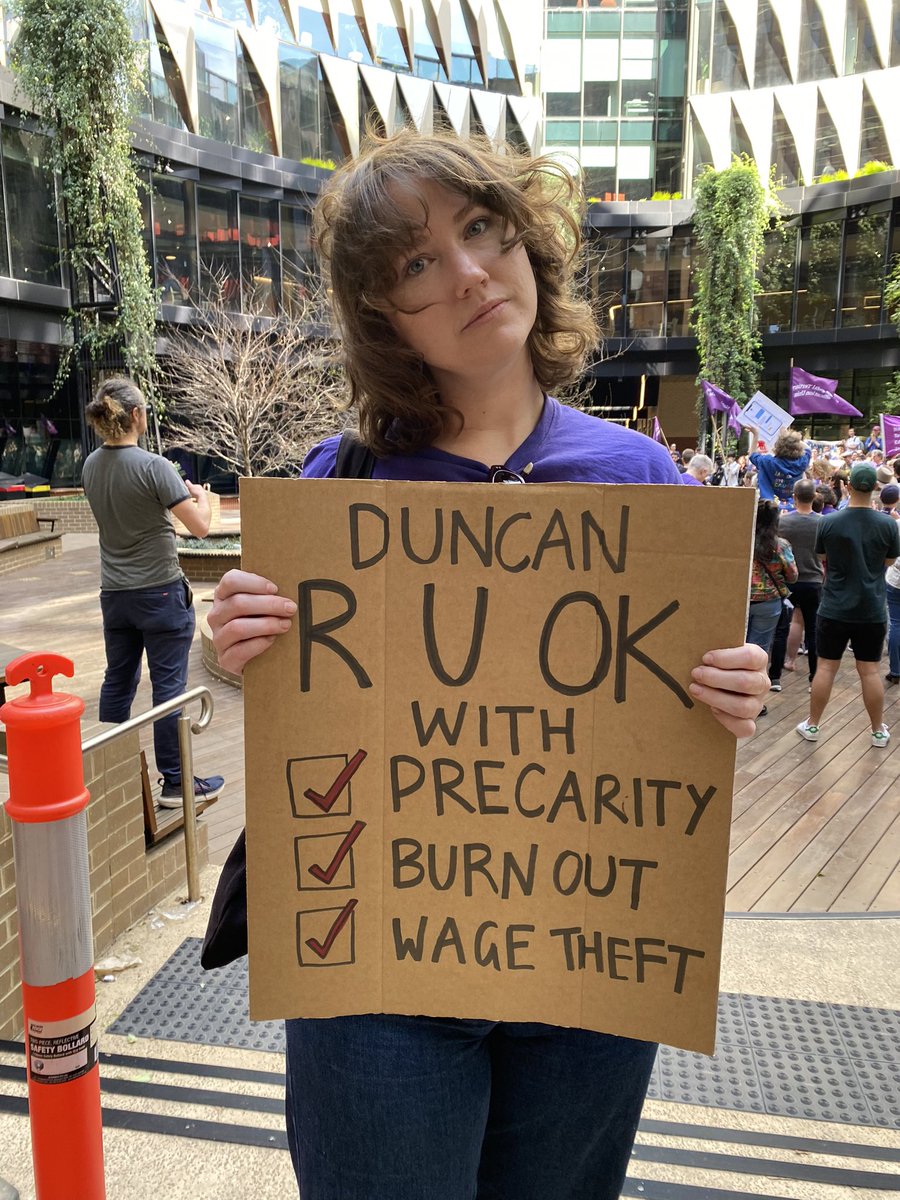 DUNCAN
R U OK
WITH
PRECARITY
BURN OUT
WAGE THEFT
SAFETY BOLLARD